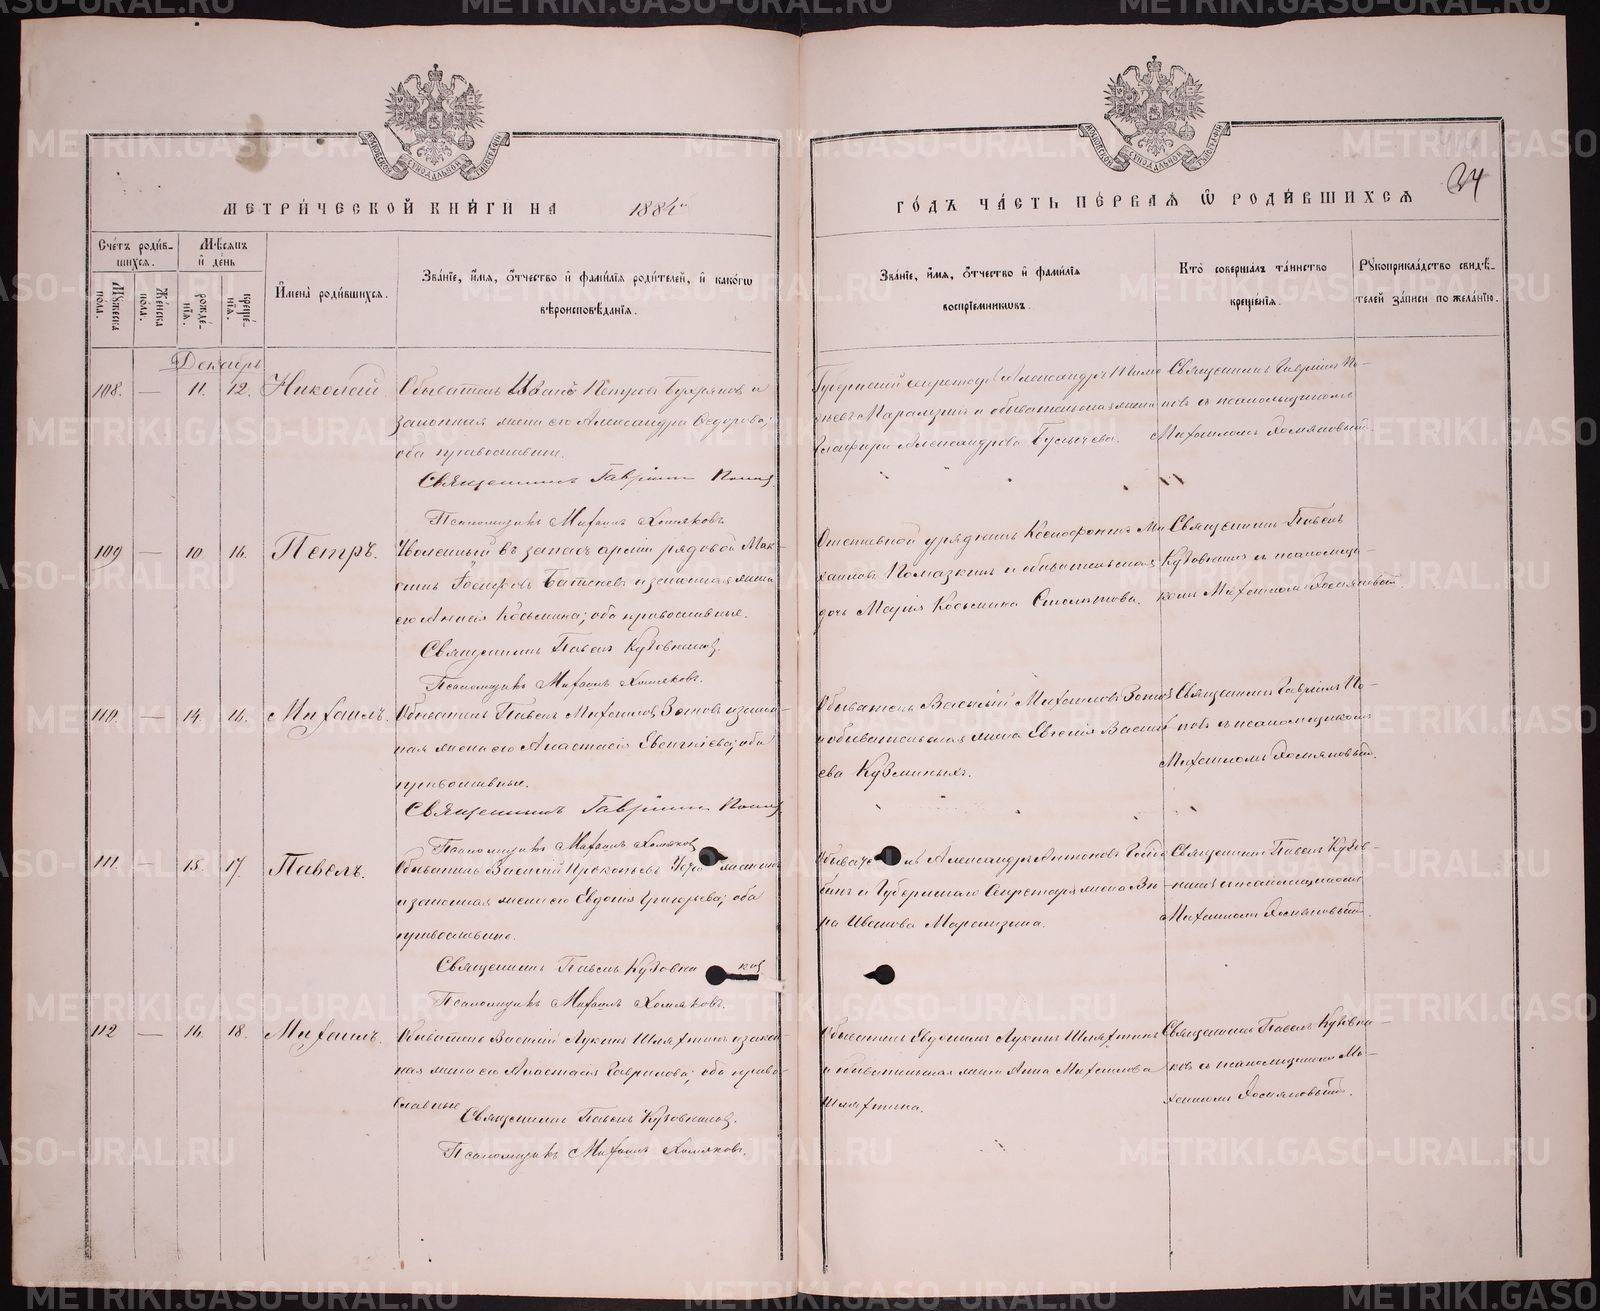 МЕТРИЧЕСКОЙ КНИГИ НА 188
ГОДЪ ЧАСТЬ ПЕРВАЯ Ѡ РОДИВШИХСЯ
34
Счетъ родив-
шихся.
Мѣсяцъ
и день
Мужеска
пола.
Женска
пола.
рожде-
нія.
креще-
нія.
Имена родившихся.
Званіе, имя, отчество и фамилія родителей, и какого
вѣроисповѣданія.
Званіе, имя, отчество и фамилія
воспріемниковъ.
Кто совершалъ таинство
крещенія.
Рукоприкладство свидѣ-
телей записи по желанію.
Декабрь
108. — 11. 12. Николай
Обыватель Иванъ Петровъ и
законная жена его Александра Ѳедорова;
оба православные.
Священникъ Гавріилъ Поповъ
Псаломщикъ Михаилъ Хомяковъ.
Губернскій секретарь Александръ
и обывательская
Глафира Александрова
Священникъ Гавріилъ По-
повъ съ псаломщикомъ
Михаиломъ Хомяковымъ.
109 — 10. 16. Петръ.
Уволенный въ запасъ арміи рядовой Мак-
симъ и законная жена
его Анисія Косьмина; оба православные.
Священникъ Павелъ Кузовниковъ.
Псаломщикъ Михаилъ Хомяковъ.
Отставной урядникъ Ксенофонтъ Ми-
хаиловъ и обывательская
дочь Марія Косьмина
Священникъ Павелъ
Кузовниковъ съ псаломщи-
комъ Михаиломъ Хомяковымъ.
110. — 14. 16. Михаилъ.
Обыватель Павелъ Михаиловъ Зотовъ и закон-
ная жена его Анастасія Евгеніева; оба
православные.
Священникъ Гавріилъ Поповъ
Псаломщикъ Михаилъ Хомяковъ
Обыватель Василій Михаиловъ Зотовъ
и обывательская жена Евгенія Василь-
ева Кузьминыхъ.
Священникъ Гавріилъ По-
повъ съ псаломщикомъ
Михаиломъ Хомяковымъ.
111. — 15. 17. Павелъ.
Обыватель Василій Прокопьевъ
и законная жена его Евдокія Григорьева; оба
православные.
Священникъ Павелъ Кузовниковъ
Псаломщикъ Михаилъ Хомяковъ.
Обыватель Александръ Антоновъ
и Губернскаго Секретаря жена
Иванова
Священникъ Павелъ Кузов-
никовъ съ псаломщикомъ
Михаиломъ Хомяковымъ.
112 — 16. 18. Михаилъ.
Обыватель Василій Лукинъ Шляхтинъ и закон-
ная жена его Анастасія Гаврилова; оба право-
славные
Священникъ Павелъ Кузовниковъ.
Псаломщикъ Михаилъ Хомяковъ.
Обыватель Евдокимъ Лукинъ Шляхтинъ
и обывательская жена Анна Михаилова
Шляхтина.
Священникъ Павелъ Кузовни-
ковъ съ псаломщикомъ Ми-
хаиломъ Хомяковымъ.
METRIKI.GASO-URAL.RU